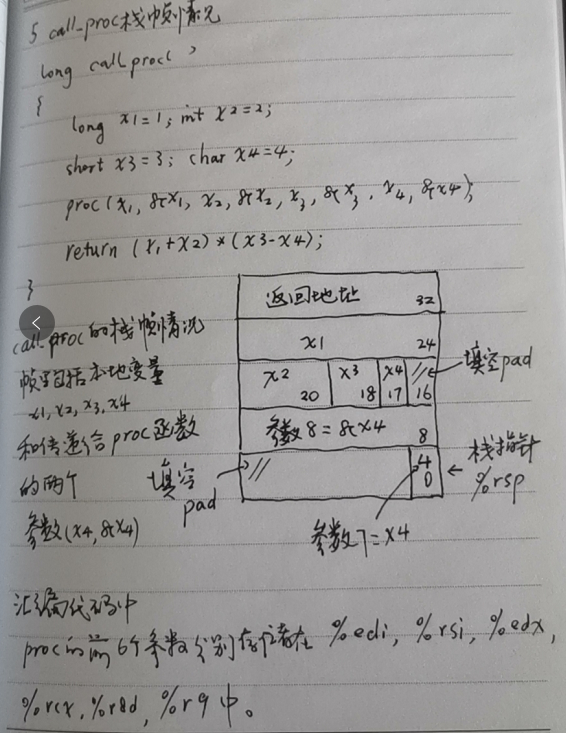 § call-proc栈中帧情况
long call proc( )
{
long x1=1; int x2=2;
short x3=3; char x4=4;
proc(x1, &x1, x2, &x2, x3, &x3, x4, &x4);
return (x1+x2)*(x3-x4);
}
call proc的栈帧情况
帧里包括本地变量
x1, x2, x3, x4
和传递给proc函数
的两个
参数(x4, &x4)
返回地址 32
x1 24
x2 20 x3 18 x4 17 // 16
填空pad
参数8=&x4 8
// 4 0
填空
pad
栈指针
%rsp
参数7=x4
汇编代码中
proc的前6个参数分别存储在 %edi, %rsi, %edx,
%rcx, %r8d, %r9中。